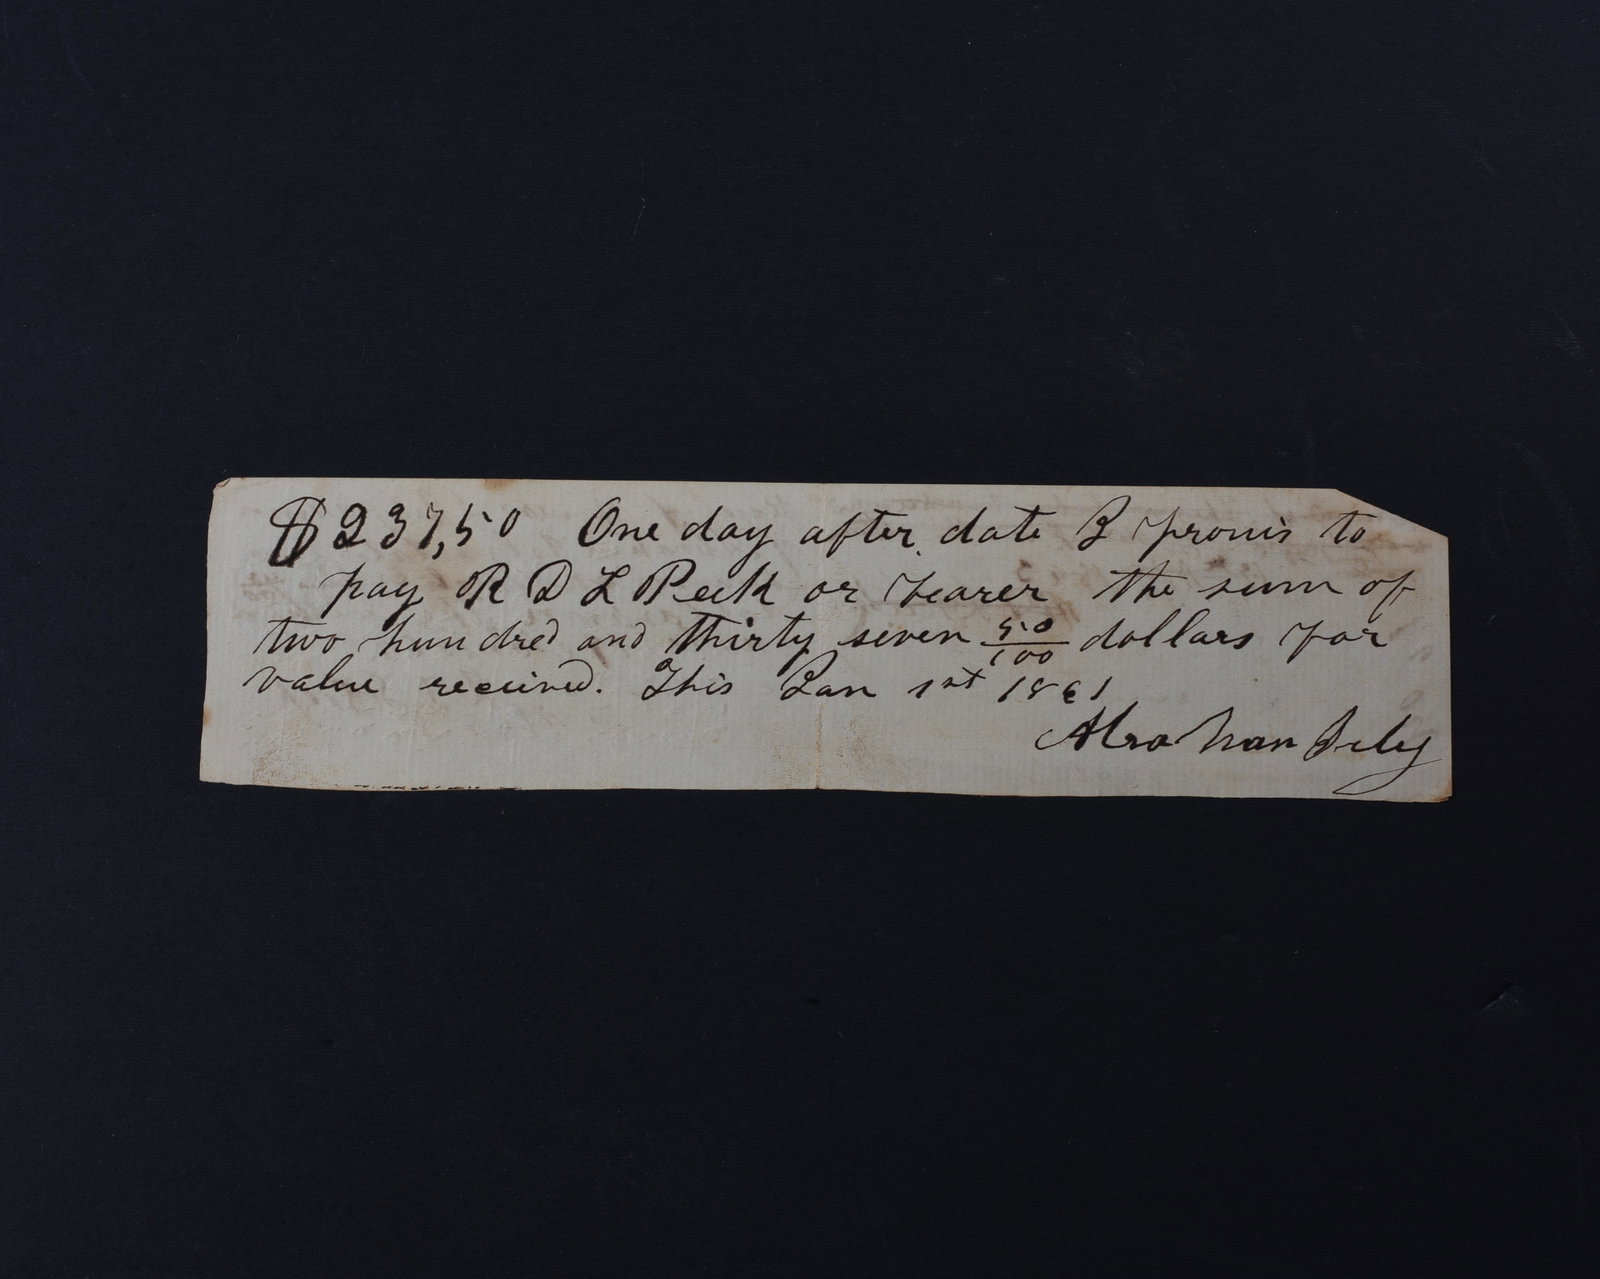 $237,50 One day after date I promis to
pay R D L Peek or bearer the sum of
two hundred and thirty seven 50/100 dollars for
value received. This Jan 1st 1861
Abraham